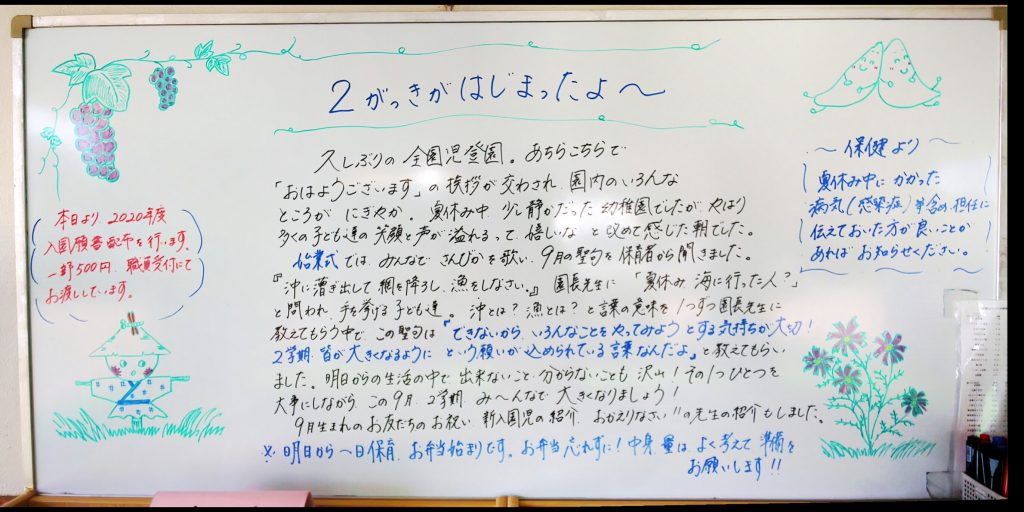 2がっきがはじまったよ～
久しぶりの全園児登園。あちらこちらで
「おはようございます」の挨拶が交わされ、園内のいろんな
ところが にぎやか。夏休み中、少し静かだった幼稚園でしたが やはり
多くの子ども達の笑顔と声が溢れるって、嬉しいな と改めて感じた朝でした。
始業式では、みんなで さんびかを歌い、9月の聖句を保育者から聞きました。
『沖に漕ぎ出して 網を降ろし、漁をしなさい。』 園長先生に 「夏休み 海に行った人？」
と問われ、手を挙げる子ども達。沖とは？漁とは？と言葉の意味を 1つずつ園長先生に
教えてもらう中で、この聖句は『できないから、いろんなことをやってみようとする気持ちが大切！
2学期、皆が大きくなるように という願いが込められている言葉なんだよ』と教えてもらい
ました。明日からの生活の中で 出来ないこと、分からないことも 沢山！その1つひとつを
大事にしながら、この9月、2学期、み～んなで 大きくなりましょう！
9月生まれのお友だちのお祝い、新入園児の紹介、おかえりなさい"の先生の紹介もしました。
※明日から一日保育、お弁当始まりです。お弁当忘れずに！中身、量は、よく考えて 準備を
お願いします!!
本日より 2020年度
入園願書配布を行います。
一部500円、職員受付にて
お渡ししています。
～ 保健より ～
夏休み中に かかった
病気(感染症)等含め、担任に
伝えておいた方が良いことが
あれば お知らせください。